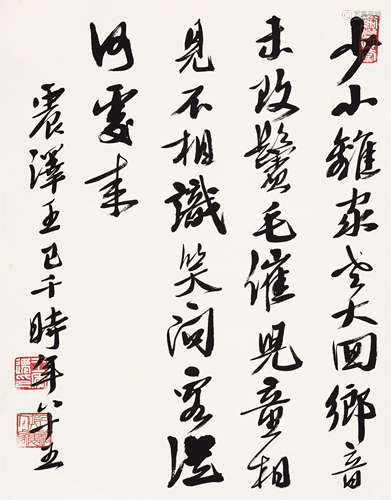 少小離家老大回鄉音
未改鬢毛催兒童相
見不相識笑問客從
何處來
震澤王己千時年八十五